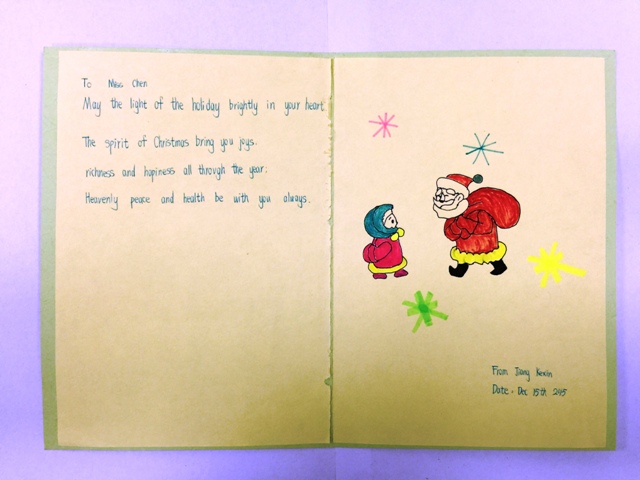 To Miss Chen
May the light of the holiday brightly in your heart
The spirit of Christmas bring you joys.
richness and hapiness all through the year.
Heavenly peace and health be with you always.
From Jiang Kexin
Date. Dec 15th 2015